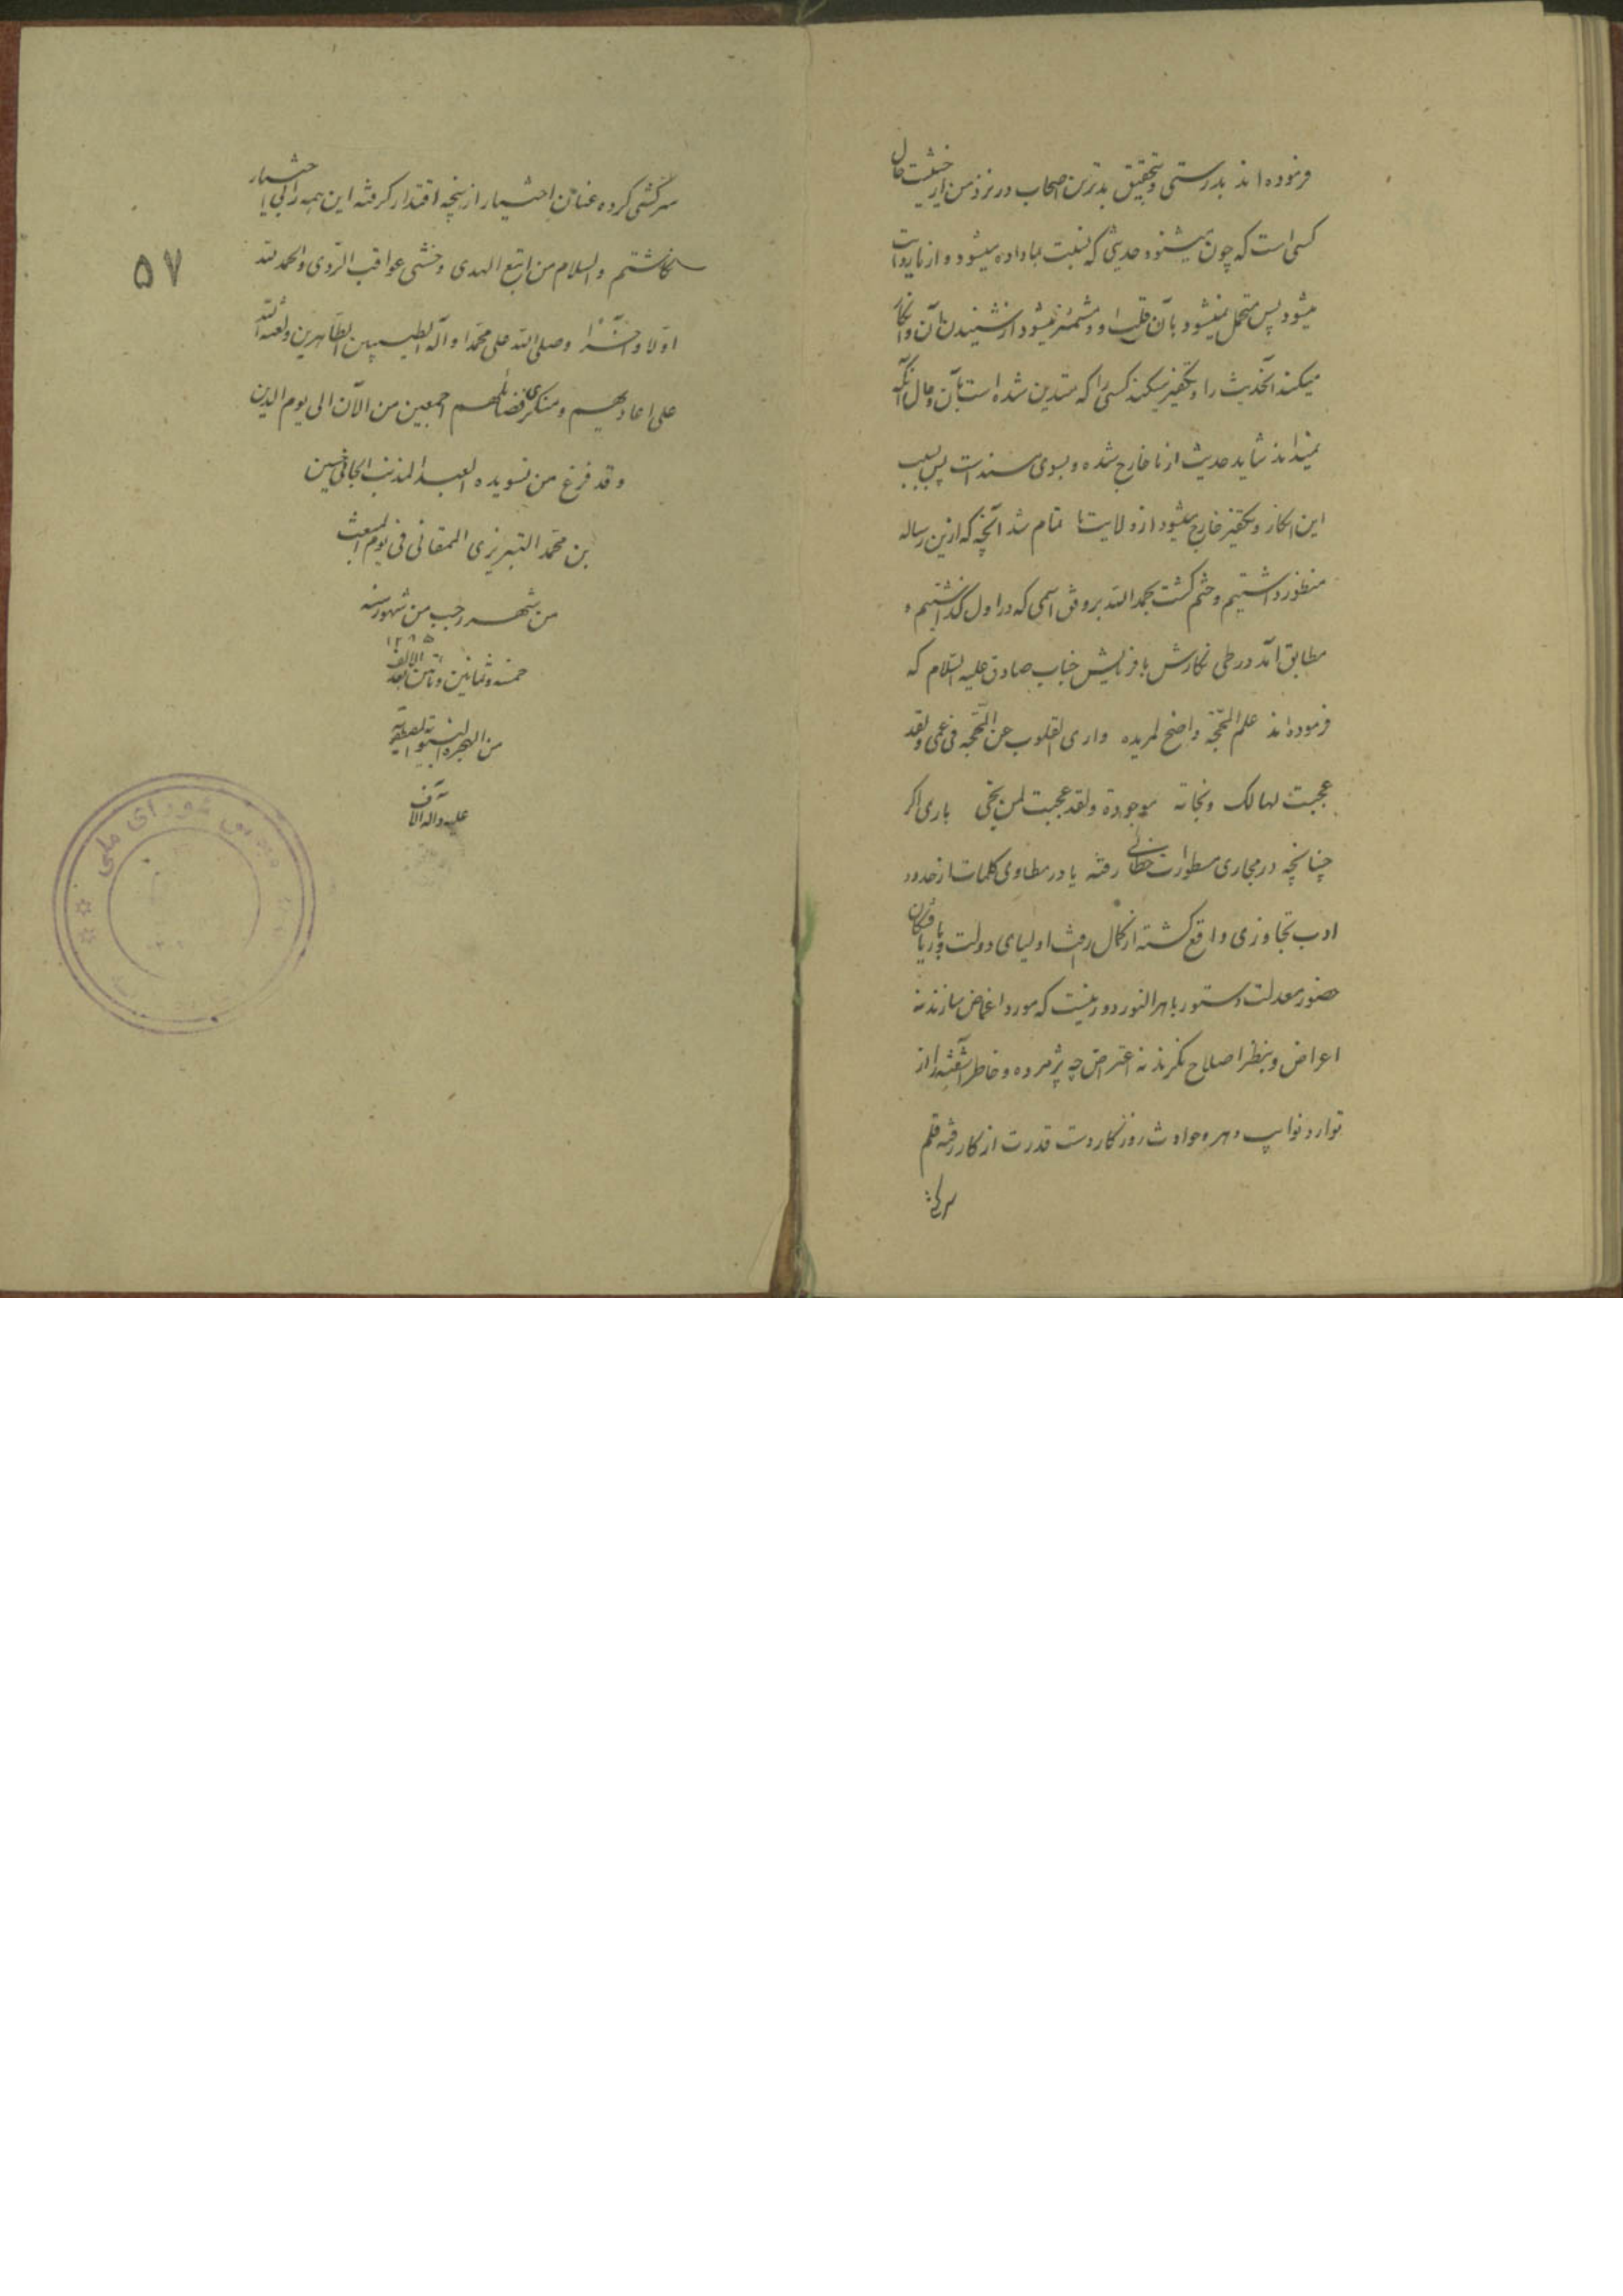 فرموده‌اند بدرستی و تحقیق بدترین اصحاب در نزد من از حیثیت حال
کسی است که چون میشنود حدیثی که نسبت بما داده میشود و از ما روایت
میشود پس متحمل نمیشود بآن قلب او و مشمئز میشود از شنیدن آن و انکار
میکند آنحدیث را و تکفیر میکند کسی را که متدین شده است بآن و حال آنکه
نمیداند شاید حدیث از ما خارج شده و بسوی ما سند است پس بسبب
این انکار و تکفیر خارج میشود از ولایت ما تمام شد آنچه که ازین رساله
منظور داشتیم و ختم گشت بحمد الله بر وفق اسمی که در اول گذاشتیم و
مطابق آمد در طی نگارش با فرمایش جناب صادق علیه السلام که
فرموده‌اند علم المحجة واضح لمریده واری القلوب عن المحجة فی عمی ولقد
عجبت لهالک ونجاته موجودة ولقد عجبت لمن نجی باری اگر
چنانچه در مجاری مسطورات خطائی رفته یا در مطاوی کلمات از حدود
ادب تجاوزی واقع گشته از کمال رأفت اولیای دولت و دریافتگان
حضور معدلت دستور باهر النور دور نیست که مورد اغماض سازند نه
اعراض و بنظر اصلاح نگرند نه اعتراض چه پژمرده و خاطر آشفته را از
توارد نوایب دهر و حوادث روزگار دست قدرت از کار رفته قلم
سرکشی
سرکشی کرده عنان اختیار از پنجه اقتدار گرفته این همه را بی اختیار
نگاشتم والسلام من اتبع الهدی وخشی عواقب الردی والحمد لله
اولا وآخرا وصلی الله علی محمد وآله الطیبین الطاهرین ولعنة الله
علی اعادیهم ومنکری فضائلهم اجمعین من الآن الی یوم الدین
۵۷
وقد فرغ من تسویده العبد المذنب الجانی حسین
بن محمد التبریزی الممقانی فی یوم المبعث
من شهر رجب من شهور سنه
۱۲۸۵
خمسة وثمانین ومأتین بعد الالف
من الهجرة النبویة المصطفویة
علیه وآله آلاف
شورای ملی